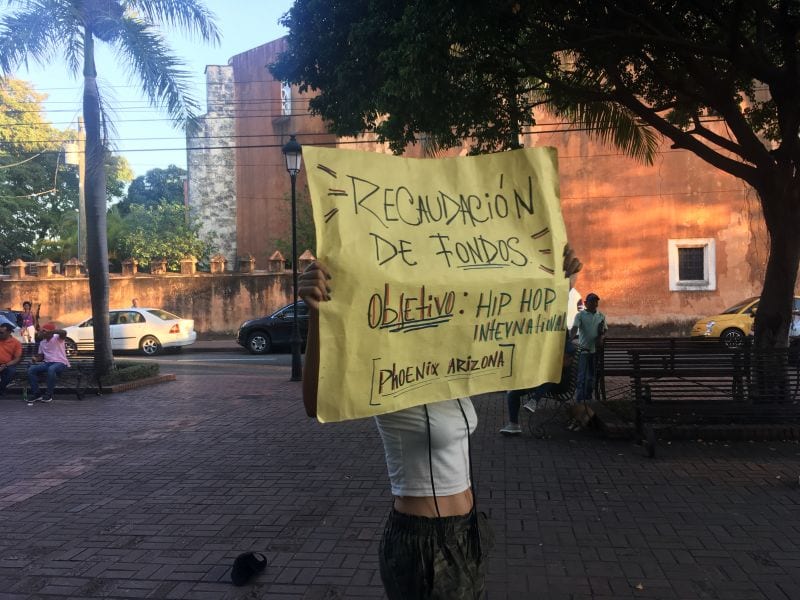 RECAUDACIÓN
DE FONDOS
Objetivo: HIP HOP
INTERNATIONAL
[PHOENIX ARIZONA]